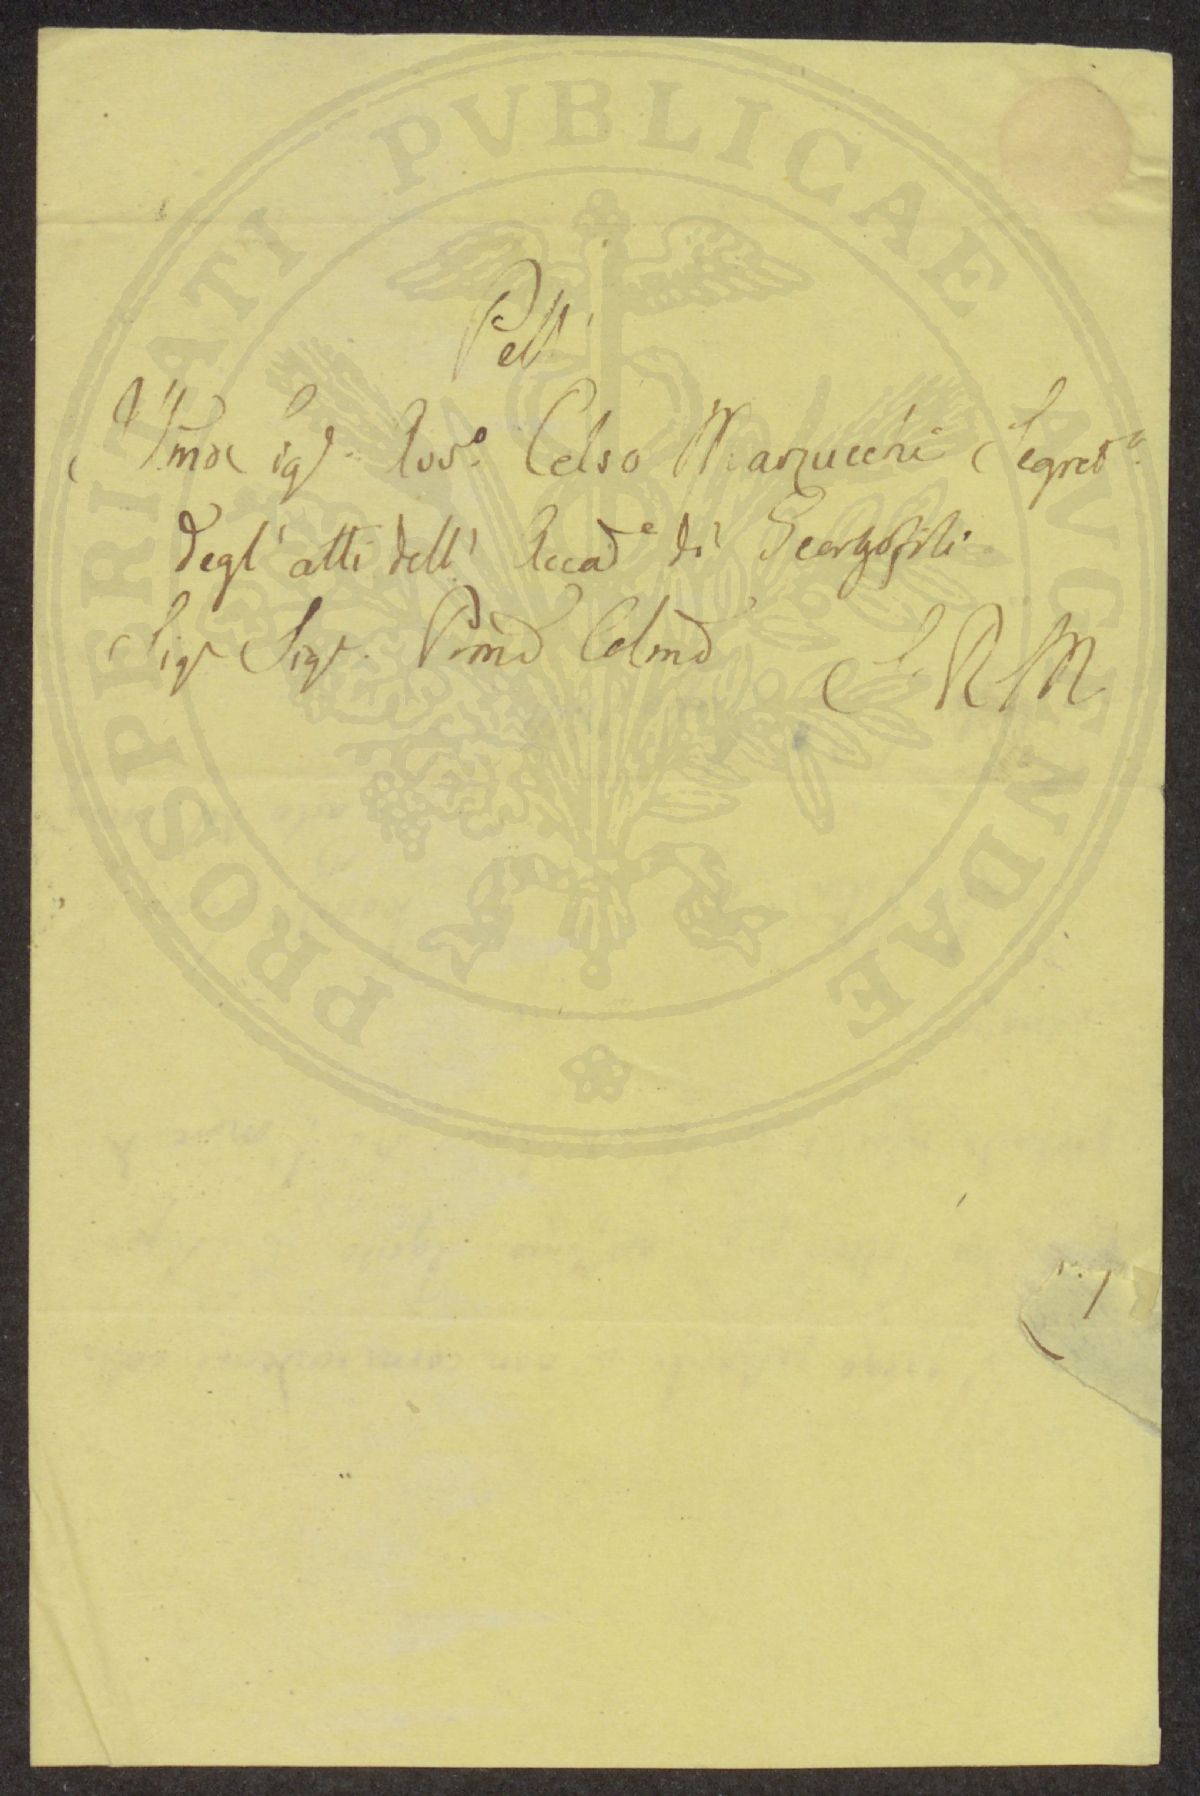 PROSPERITATI PVBLICAE AVGENDAE
Pell'
Illmo Sigr. Avvo. Celso Marzucchi Segreto.
degl' atti dell' Accade di Georgofili
Sigr Sigr. Pronō Colmō
S. R. M.